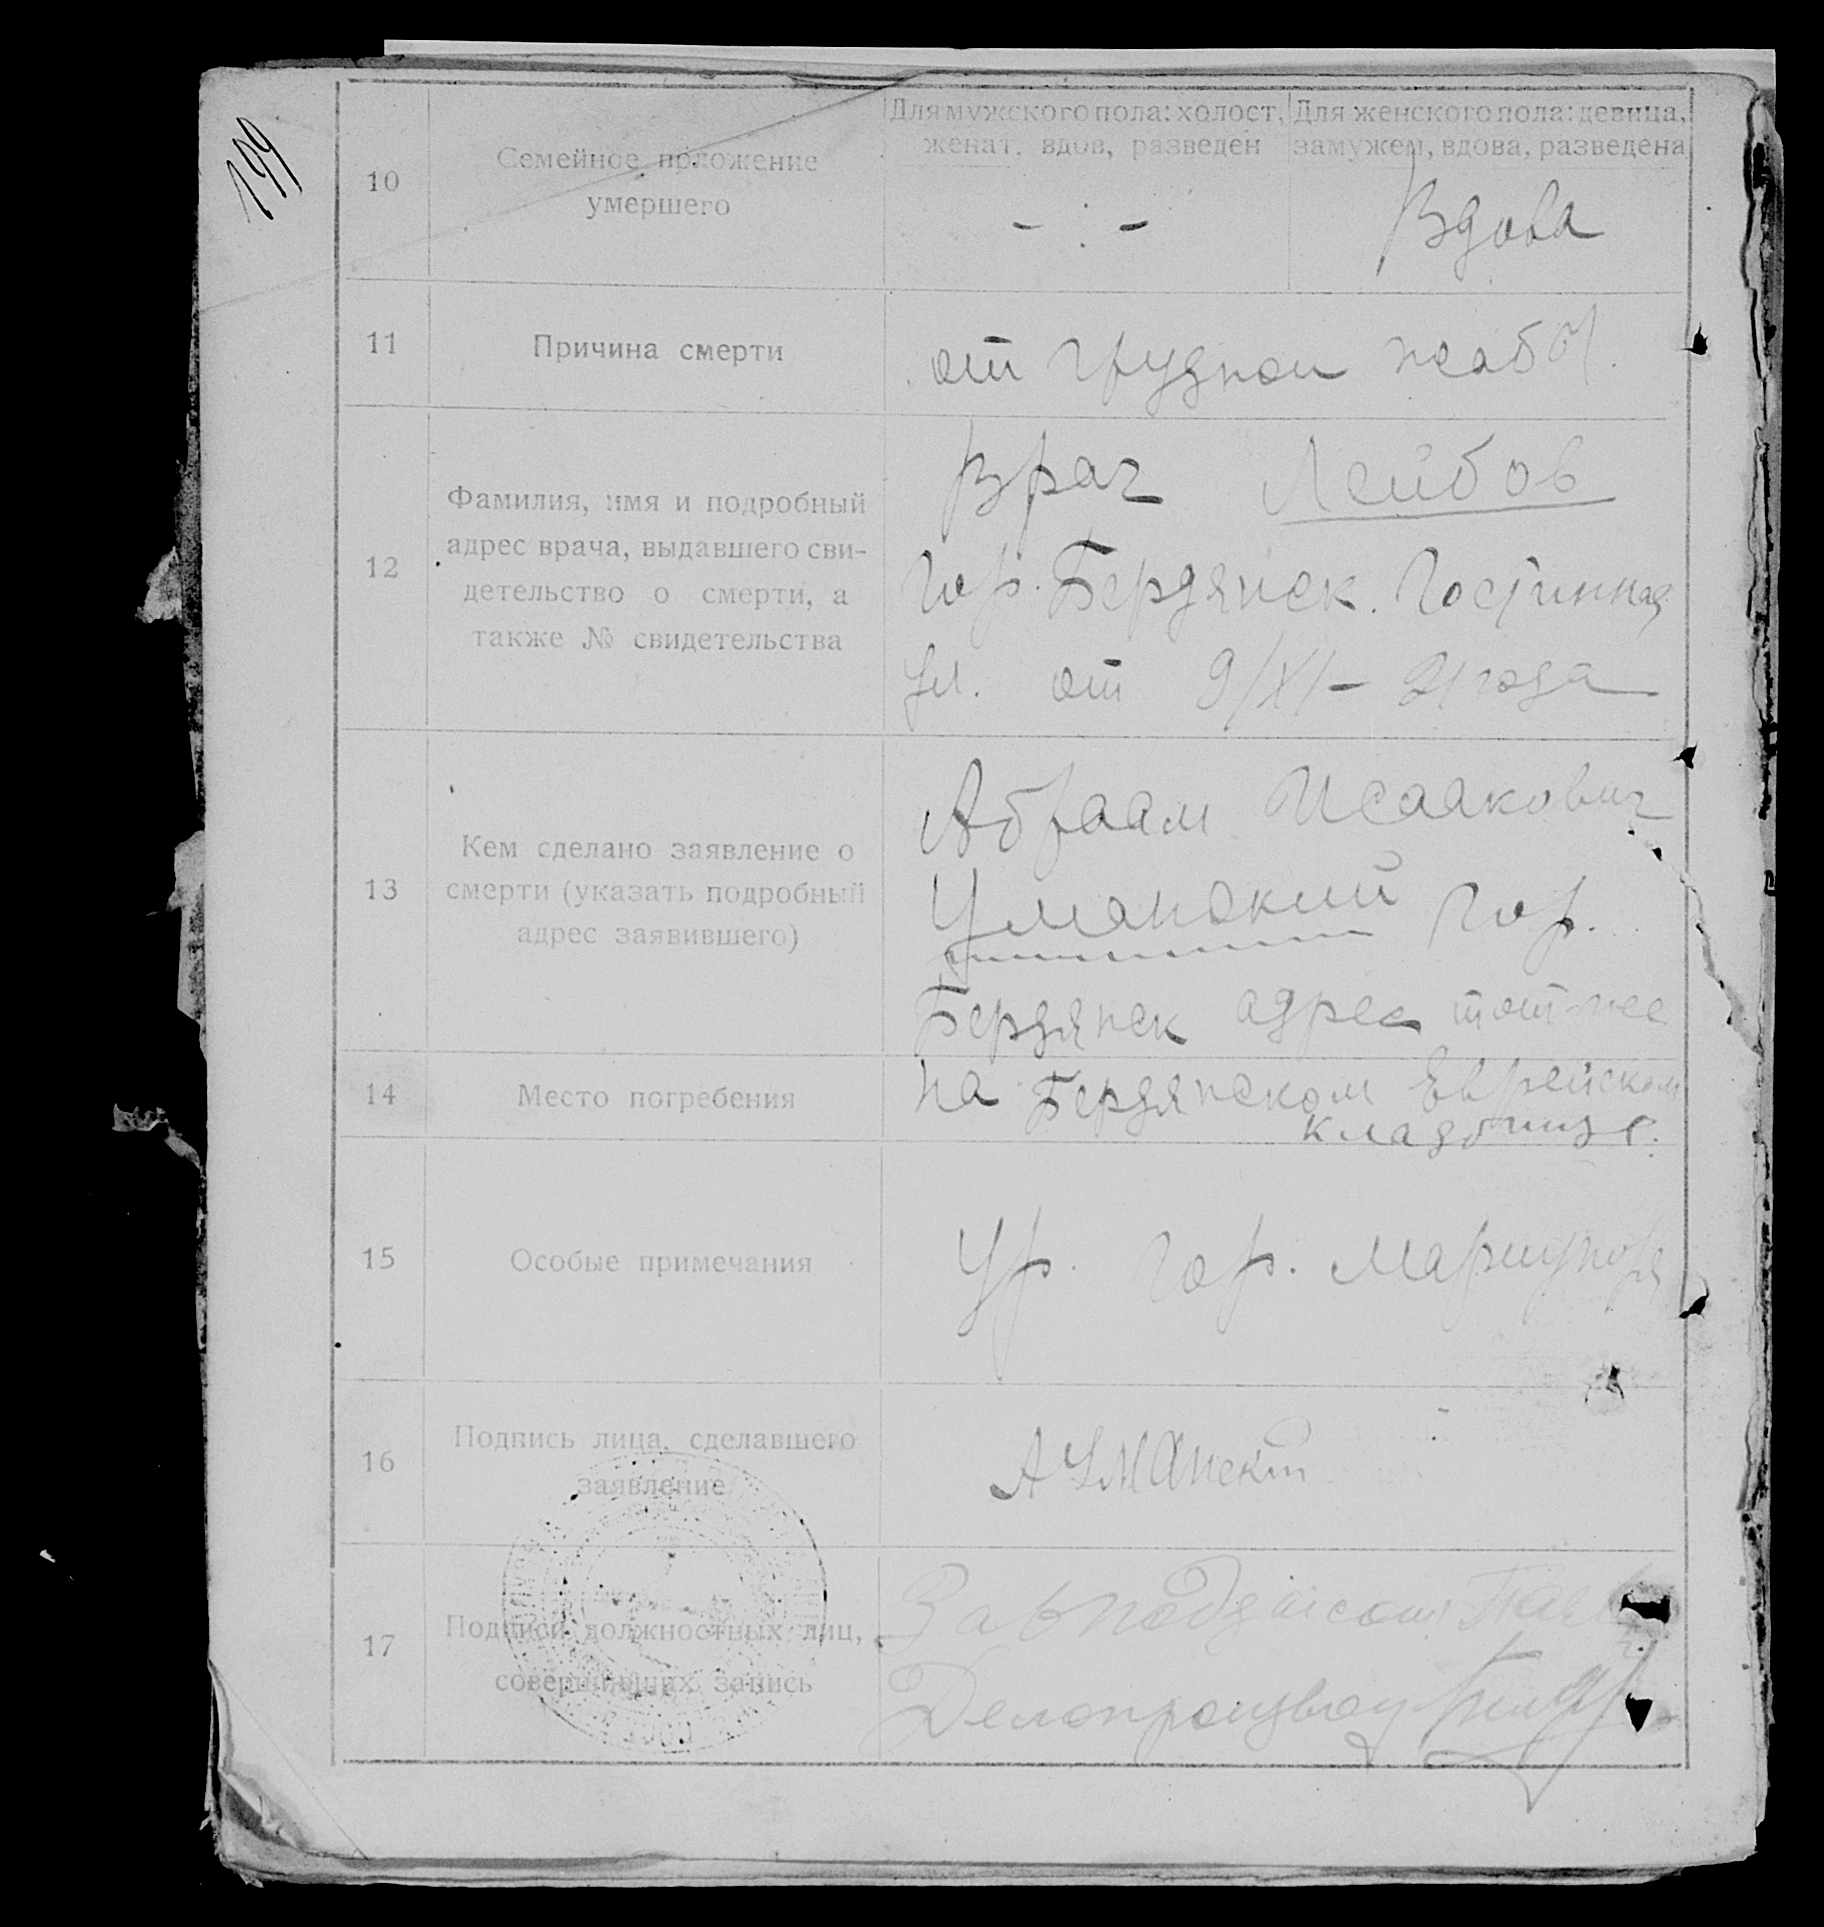 199
10
Семейное положение
умершего
Для мужского пола: холост,
женат, вдов, разведен
Для женского пола: девица,
замужем, вдова, разведена
- : -
Вдова
11
Причина смерти
от грудной жабы.
12
Фамилия, имя и подробный
адрес врача, выдавшего сви-
детельство о смерти, а
также № свидетельства
Врач Лейбов
гор. Бердянск. Гостинная
ул. от 9/XI – 21 года
13
Кем сделано заявление о
смерти (указать подробный
адрес заявившего)
Абраам Исаакович
Уманский гор.
Бердянск адрес тот-же
14
Место погребения
на Бердянском Еврейском
кладбище.
15
Особые примечания
Ур. гор. Мариуполя
16
Подпись лица, сделавшего
заявление
А Уманский
17
Подписи должностных лиц,
совершивших запись
Завподотделом
Делопроизвод